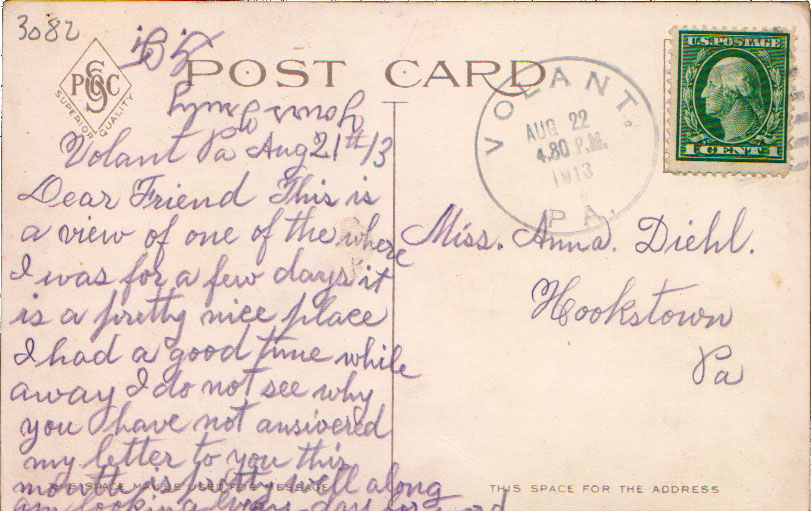 3082
POST CARD
PCSC
SUPERIOR QUALITY
Yours Truly
Volant Pa Aug 21st 13
Dear Friend This is
a view of one of the where
I was for a few days it
is a pretty nice place
I had a good time while
away I do not see why
you have not answered
my letter to you this
month is pretty well along
am looking every day for word
THIS SPACE MAY BE USED FOR MESSAGE
VOLANT.
AUG 22
4.30 P.M.
1913
PA.
U.S. POSTAGE
1 CENT 1
Miss. Anna. Diehl.
Hookstown
Pa
THIS SPACE FOR THE ADDRESS